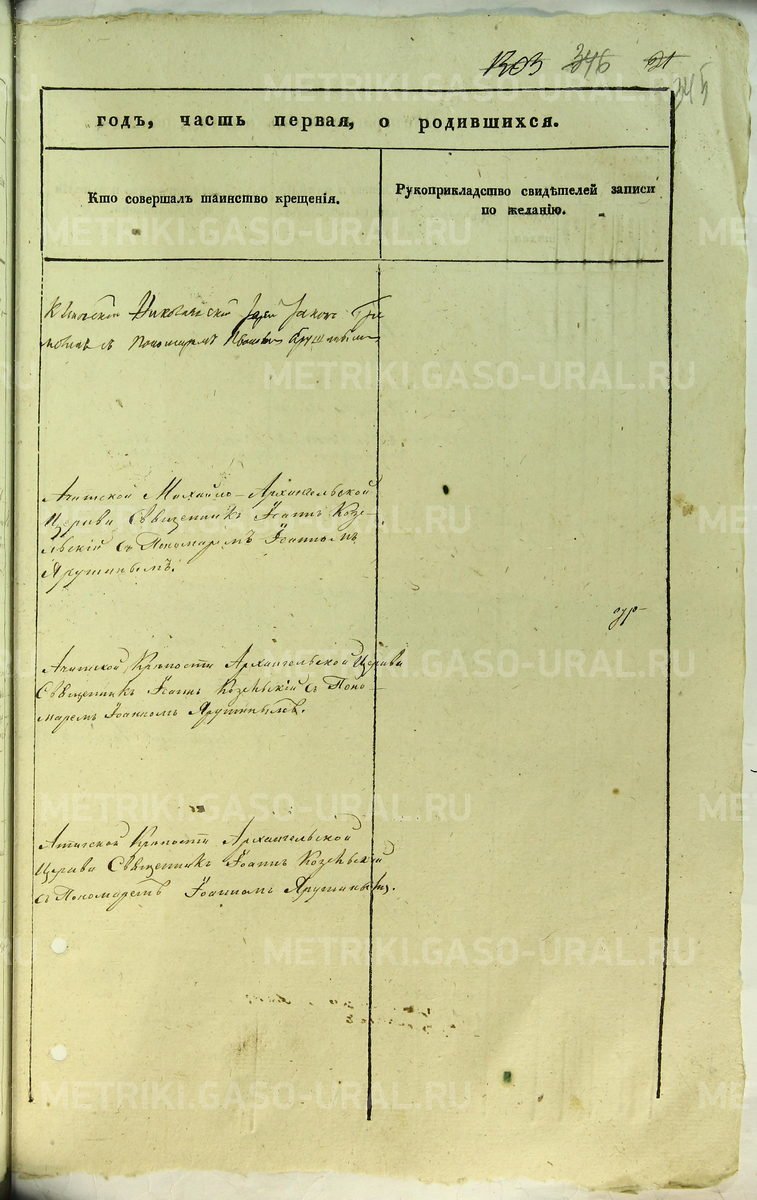 1303 316 21
345
годъ, часть первая, о родившихся.
Кто совершалъ таинство крещенія.
Рукоприкладство свидѣтелей записи
по желанію.
Николаевскій
съ Пономаремъ
Ачитской Михайло-Архангельской
Церкви Священникъ Іоаннъ Козе-
льскій съ Пономаремъ Іоанномъ
Ярушинымъ.
Ачитской Крѣпости Архангельской Церкви
Священникъ Іоаннъ Козельскій съ Поно-
маремъ Іоанномъ Ярушинымъ.
Ачитской Крѣпости Архангельской
Церкви Священникъ Іоаннъ Козельскій
съ Пономаремъ Іоанномъ Ярушинымъ.
METRIKI.GASO-URAL.RU